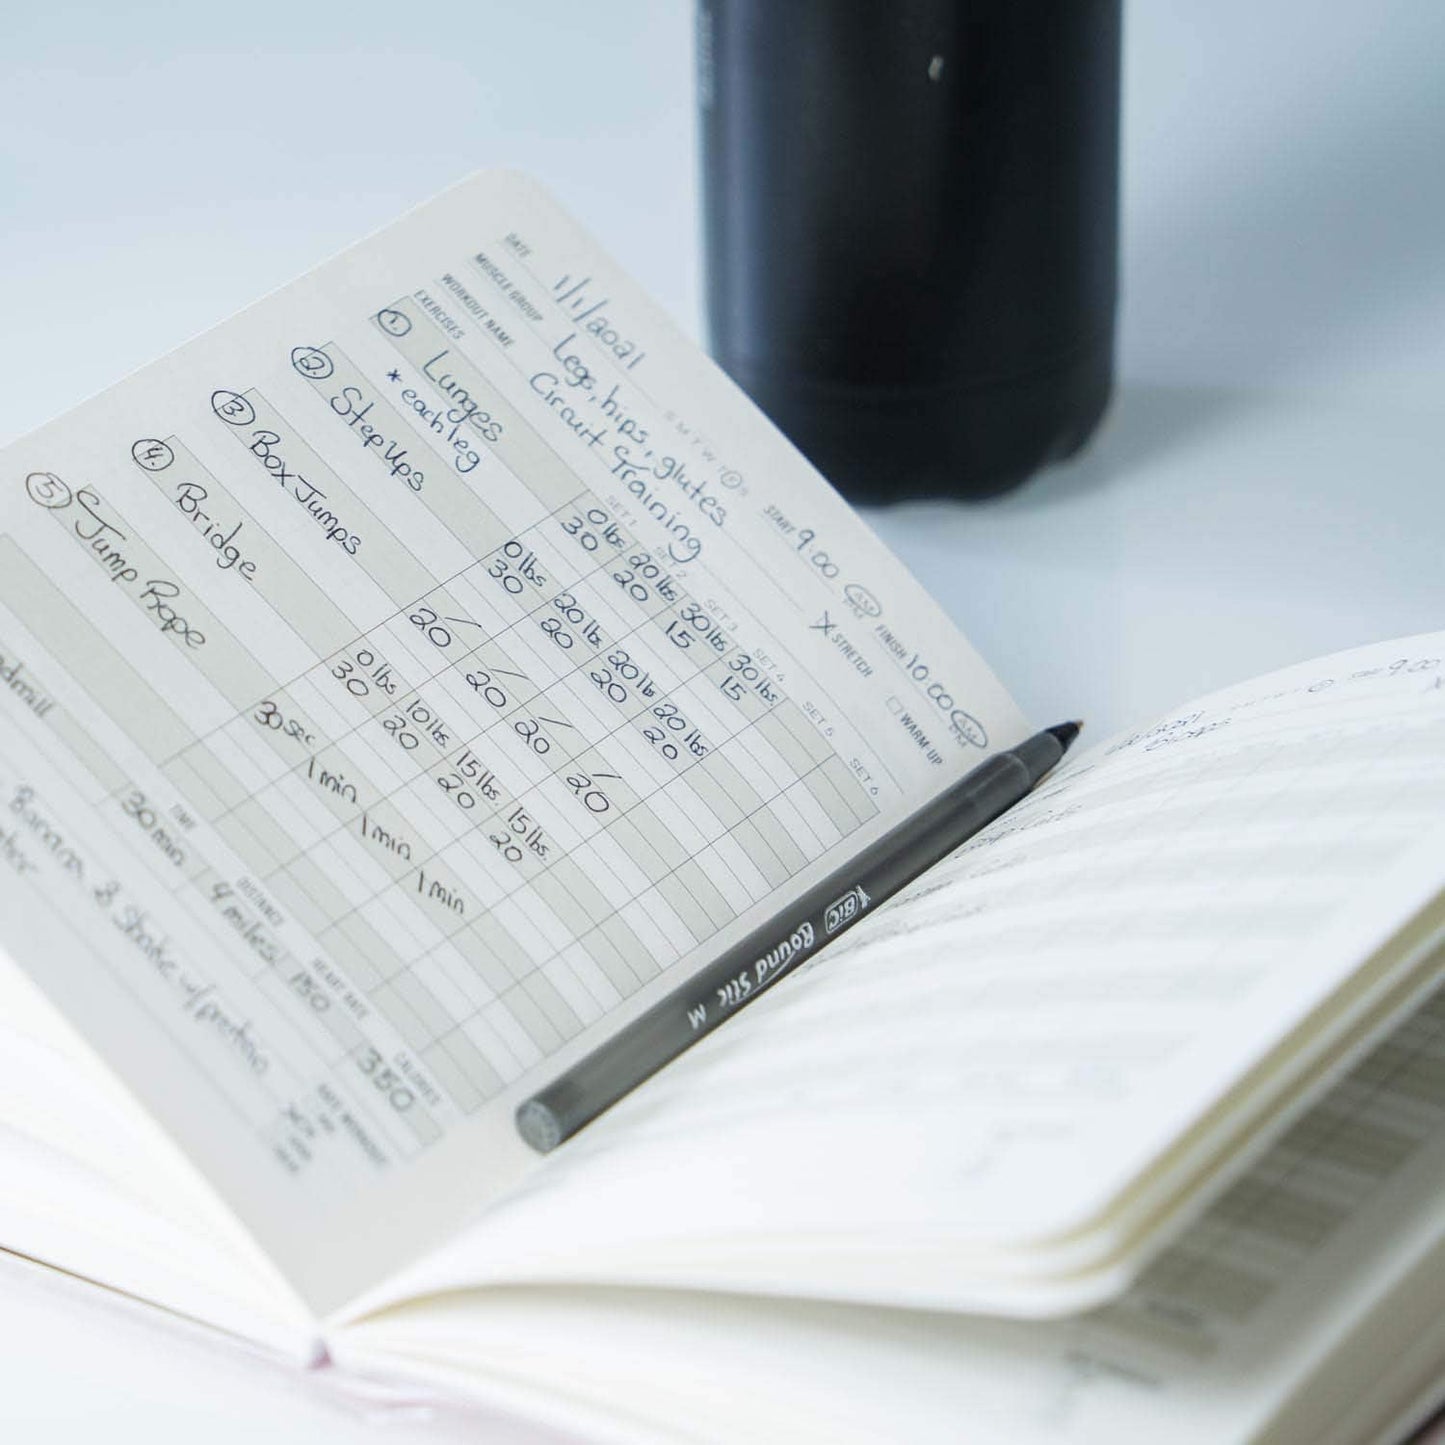 DATE 1/1/2021 S M T W T F S START 9:00 AM PM FINISH 10:00 AM PM
MUSCLE GROUP Legs, hips, glutes X STRETCH WARM-UP
WORKOUT NAME Circuit Training
EXERCISES SET 1 SET 2 SET 3 SET 4 SET 5 SET 6
1. Lunges 0 lbs 20 lbs 30 lbs 30 lbs.
* each leg 30 20 15 15
2. Step Ups 0 lbs 20 lbs. 20 lb 20 lbs
30 20 20 20
3 Box Jumps — — — —
20 20 20 20
4. Bridge 0 lbs 10 lbs. 15 lbs. 15 lbs.
30 20 20 20
5 Jump Rope 30 sec 1 min 1 min 1 min
TIME DISTANCE HEART RATE CALORIES
30 min 4 miles 150 350
Banana & Shake w/ protein
BIC Round Stic M
9:00
Biceps